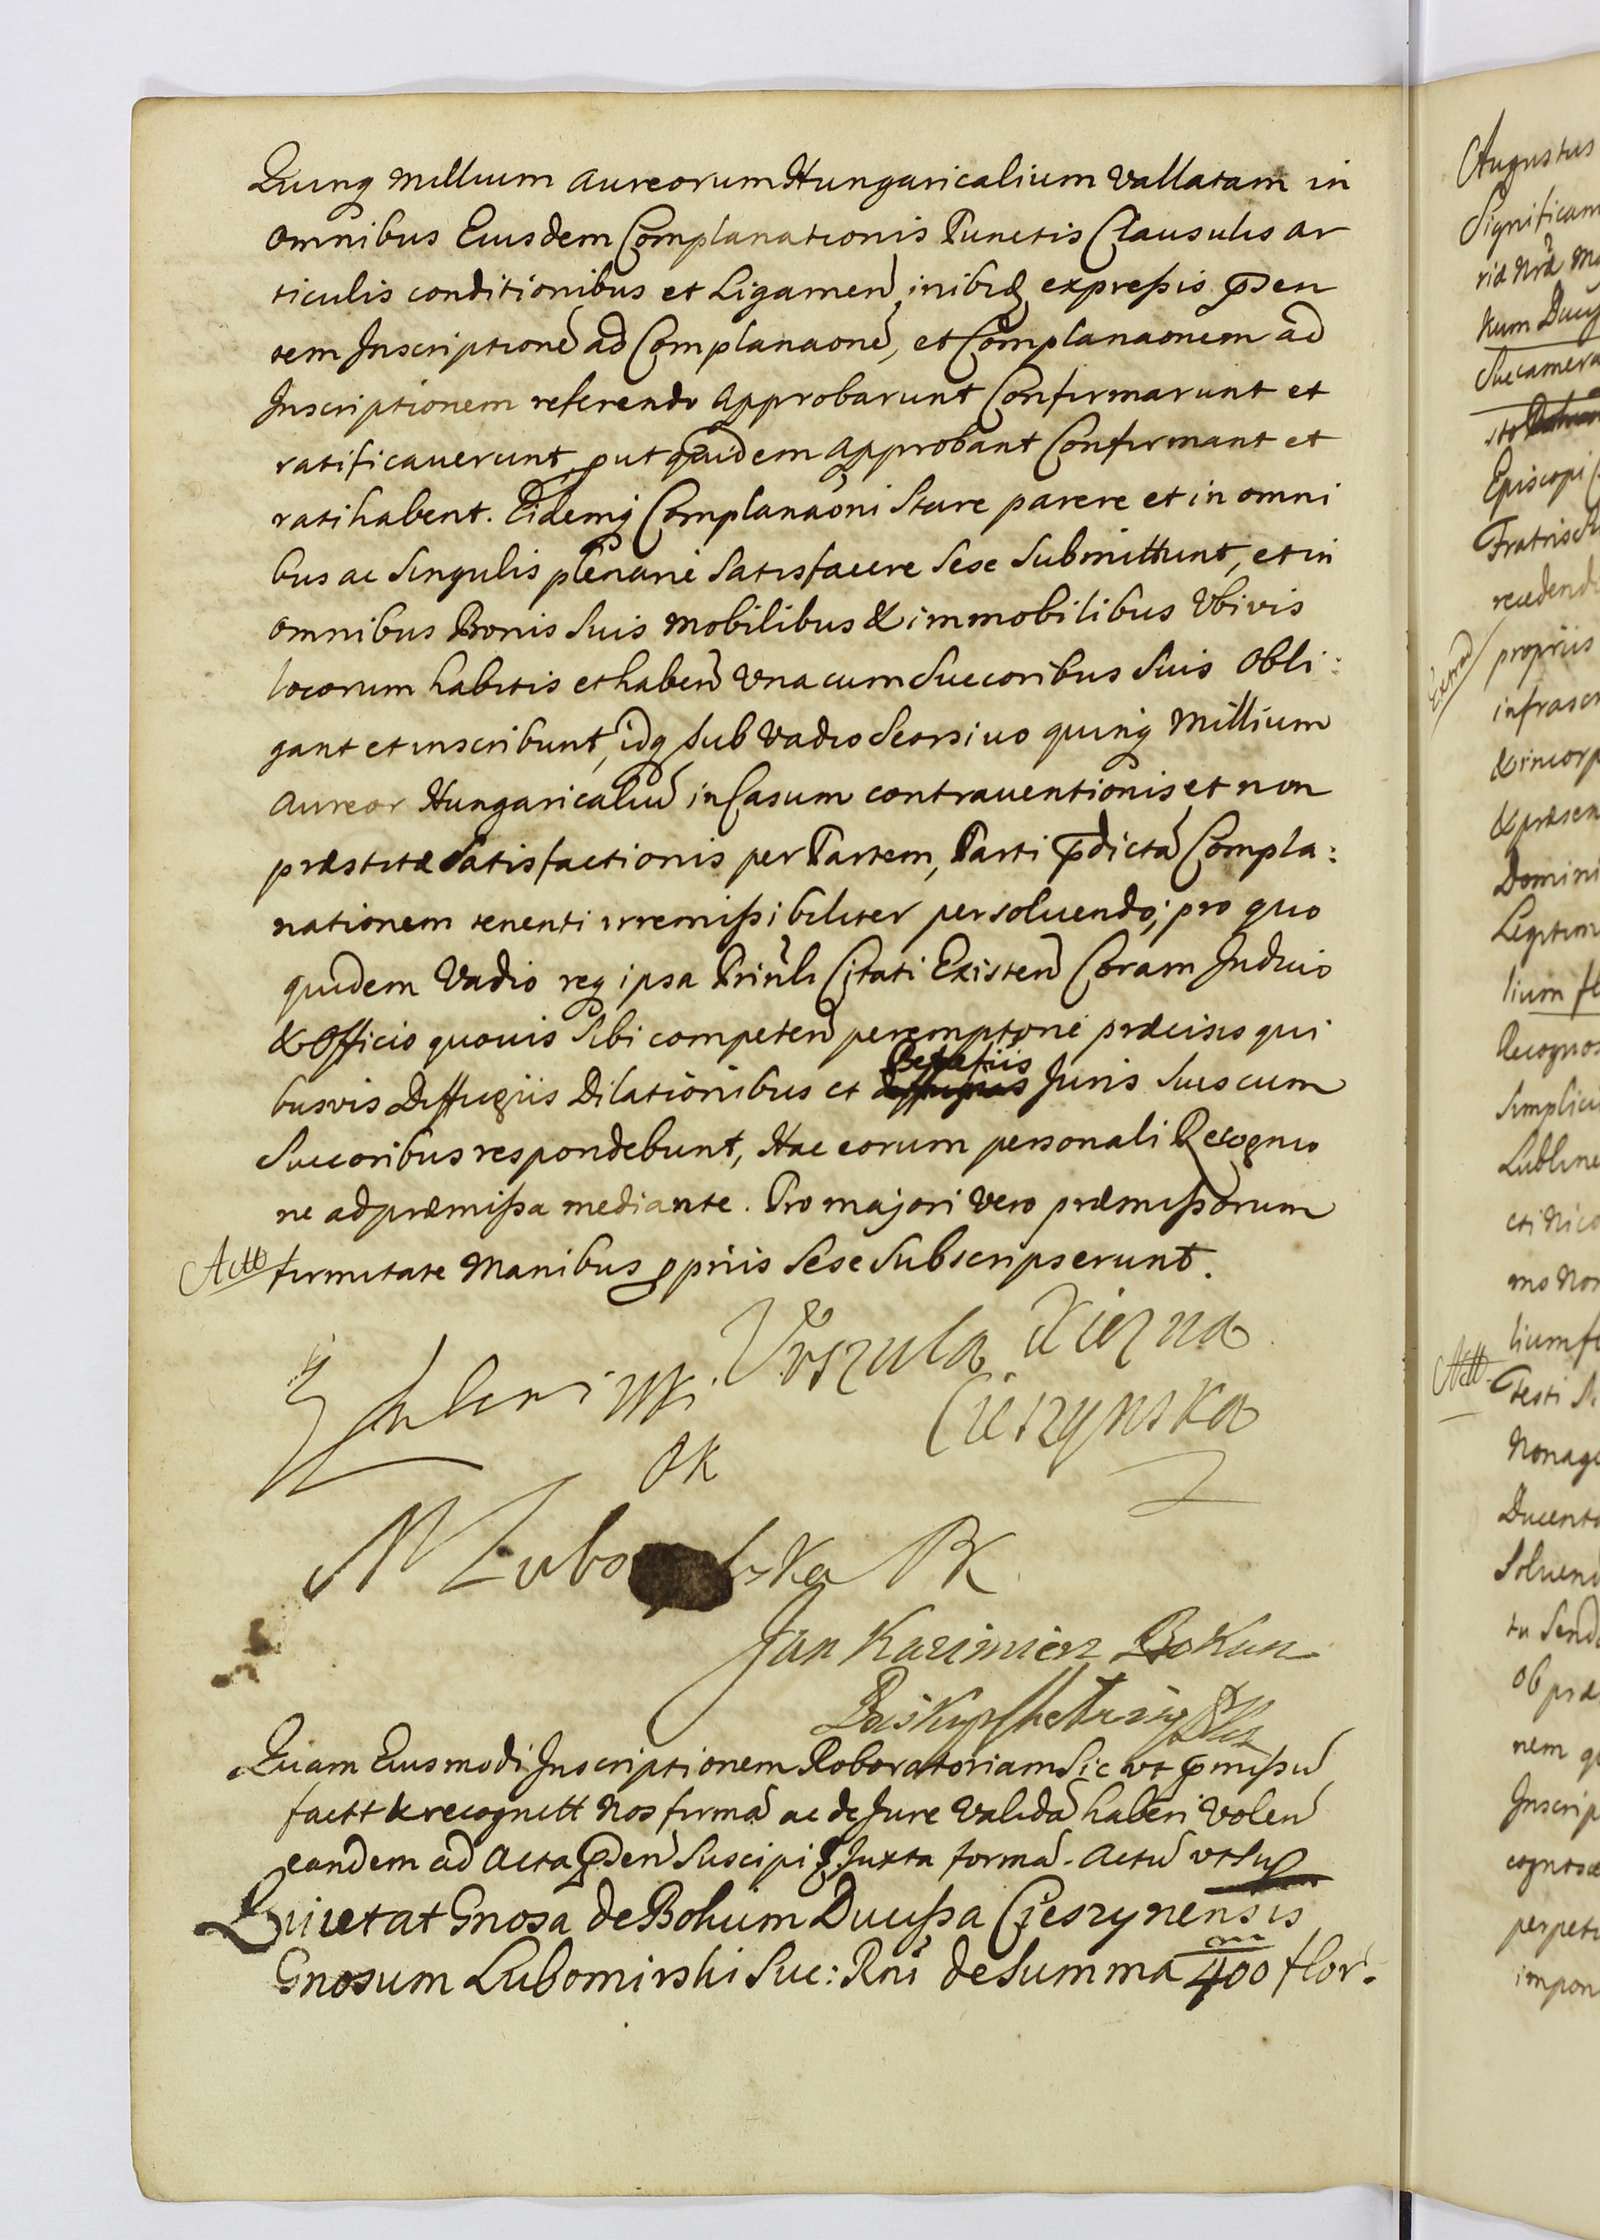 Quinq millium aureorum Hungaricalium vallatam in
omnibus Eiusdem Complanationis Punctis Clausulis ar
ticulis conditionibus et Ligamen inibiq expressis pnsen
tem Inscriptione ad Complanaone, et Complanaonem ad
Inscriptionem referendo approbarunt Confirmarunt et
ratificaverunt put quidem approbant Confirmant et
ratihabent. Eidemq Complanaoni Stare parere et in omni
bus ac Singulis plenarie Satisfacere Sese Submittunt, et in
omnibus Bonis Suis mobilibus & immobilibus Vbivis
locorum habitis et haben vna cum Succoribus Suis Obli:
gant et inscribunt, idq sub vadio Seorsivo quinq Millium
Aureor Hungaricaliu in Casum contraventionis et non
præstitæ Satisfactionis per Partem, Parti pdicta Compla:
nationem tenenti irremissibiliter persoluendo; pro quo
quidem Vadio req ipsa Prinli Citati Existen Coram Judicio
& Officio quovis Sibi competen peremptorie præcisis qui
busvis Diffugiis Dilationibus et Befitiis Juris Suis cum
Succoribus respondebunt, Hac eorum personali Recognio
ne ad præmissa mediante. Pro majori vero præmissorum
Actt firmitate Manibus ppriis Sese Subscripserunt.
Vrszula Xiezna
Cieszynska
PK
M Lubo ska PK
Jan Kazimierz Bokun
Quam Eiusmodi Inscriptionem Roboratoriam Sic vt pmissu
factt & recognitt Nos firma ac de Jure Valida haberi Volen
eandem ad Acta psen Suscipi & Juxta forma. Actu vt Sup
Quietat Gnosa de Bohum Ducissa Cieszynensis
Gnosum Lubomirski Suc: Rni de Summa 400 m flor.
Augustus
Significam
ria Nra Ma
num Ducis
Succamera
Episcopi
Fratris
recedend
Extrad propriis
infrascr
& incorp
& præsen
Domini
Legitim
lium fl
Recognos
Simplici
Lubline
cti Nico
mo Non
lium fl
Actt Festi
Nonage
Ducento
Soluend
tu Send
Ob præ
nem q
Inscrip
cognitæ
perpetu
impon